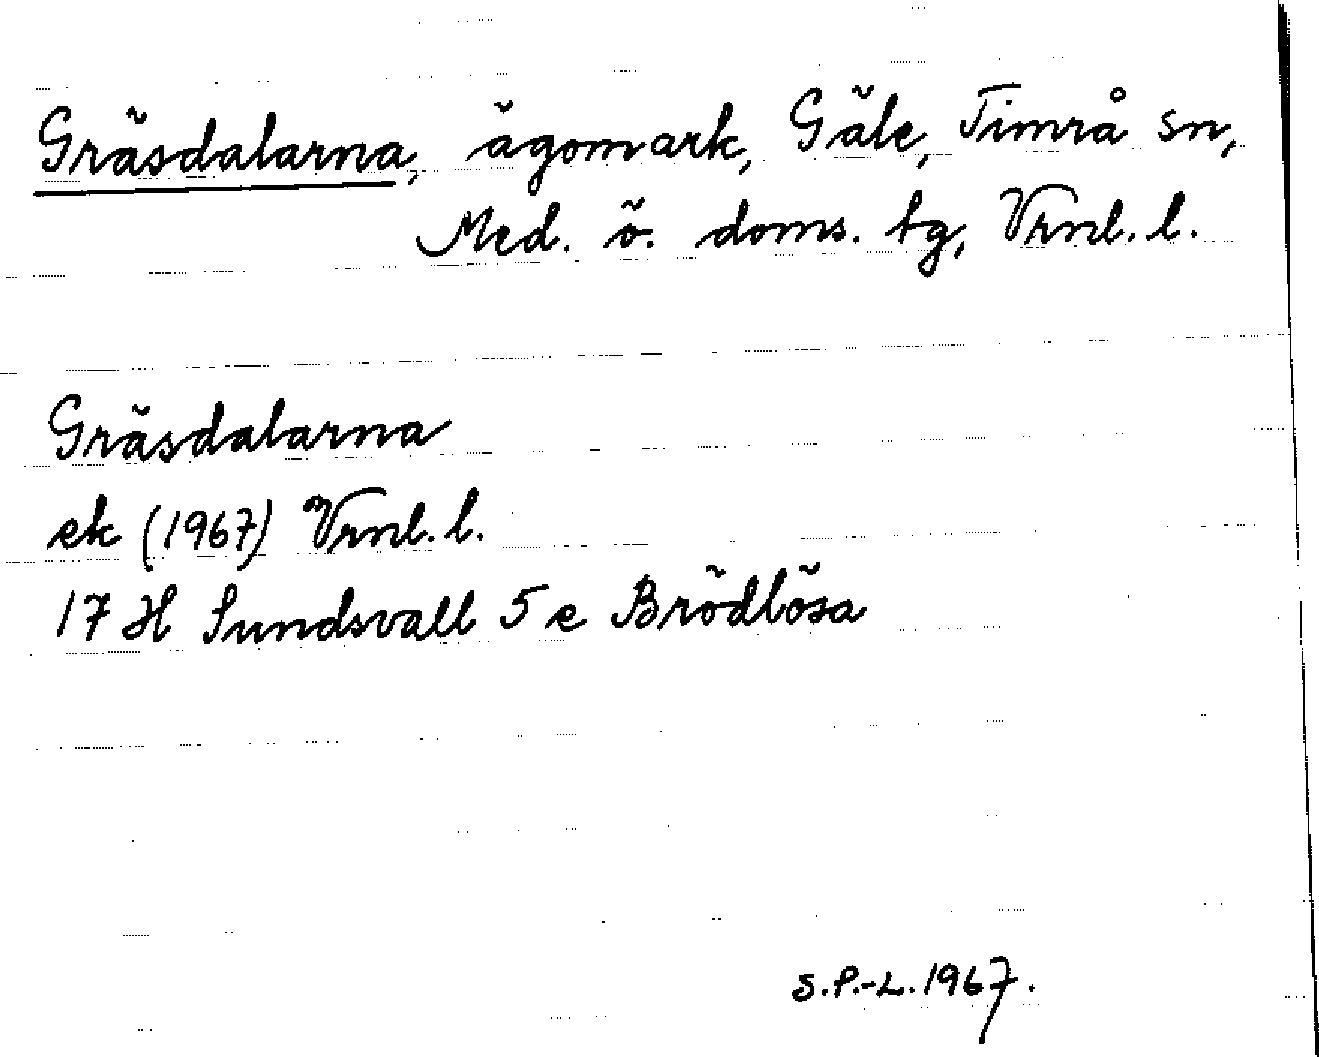 Gräsdalarna, ägomark, Gäle, Timrå sn,
Med. ö. doms. tg, Vrnl. l.
Gräsdalarna
ek (1967) Vrnl. l.
17 H Sundsvall 5 e Brödlösa
S.P.-L. 1967.